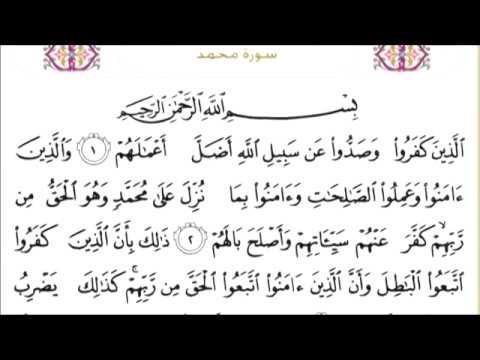 سورة محمد
بِسْمِ ٱللَّهِ ٱلرَّحْمَٰنِ ٱلرَّحِيمِ
ٱلَّذِينَ كَفَرُوا۟ وَصَدُّوا۟ عَن سَبِيلِ ٱللَّهِ أَضَلَّ أَعْمَٰلَهُمْ ۝١ وَٱلَّذِينَ
ءَامَنُوا۟ وَعَمِلُوا۟ ٱلصَّٰلِحَٰتِ وَءَامَنُوا۟ بِمَا نُزِّلَ عَلَىٰ مُحَمَّدٍ وَهُوَ ٱلْحَقُّ مِن
رَّبِّهِمْ ۙ كَفَّرَ عَنْهُمْ سَيِّـَٔاتِهِمْ وَأَصْلَحَ بَالَهُمْ ۝٢ ذَٰلِكَ بِأَنَّ ٱلَّذِينَ كَفَرُوا۟
ٱتَّبَعُوا۟ ٱلْبَٰطِلَ وَأَنَّ ٱلَّذِينَ ءَامَنُوا۟ ٱتَّبَعُوا۟ ٱلْحَقَّ مِن رَّبِّهِمْ ۚ كَذَٰلِكَ يَضْرِبُ